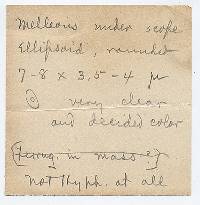 Melleous under scope
Ellipsoid, rounded
7-8 x 3.5-4 µ
very clear
and decided color
in mass
not hyph. at all